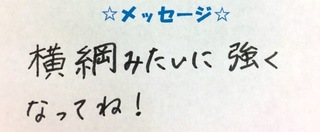 ☆メッセージ☆
横綱みたいに強く
なってね！